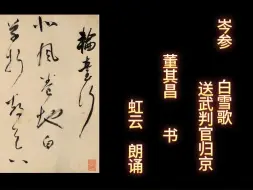 岑参 白雪歌
送武判官归京
董其昌 书
虹云 朗诵
輪臺行
北風卷地白
草折胡天八